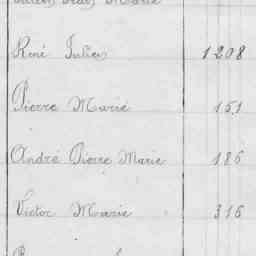 Julien Jean Marie
René Julien 1208
Pierre Marie 151
André Pierre Marie 186
Victor Marie 316